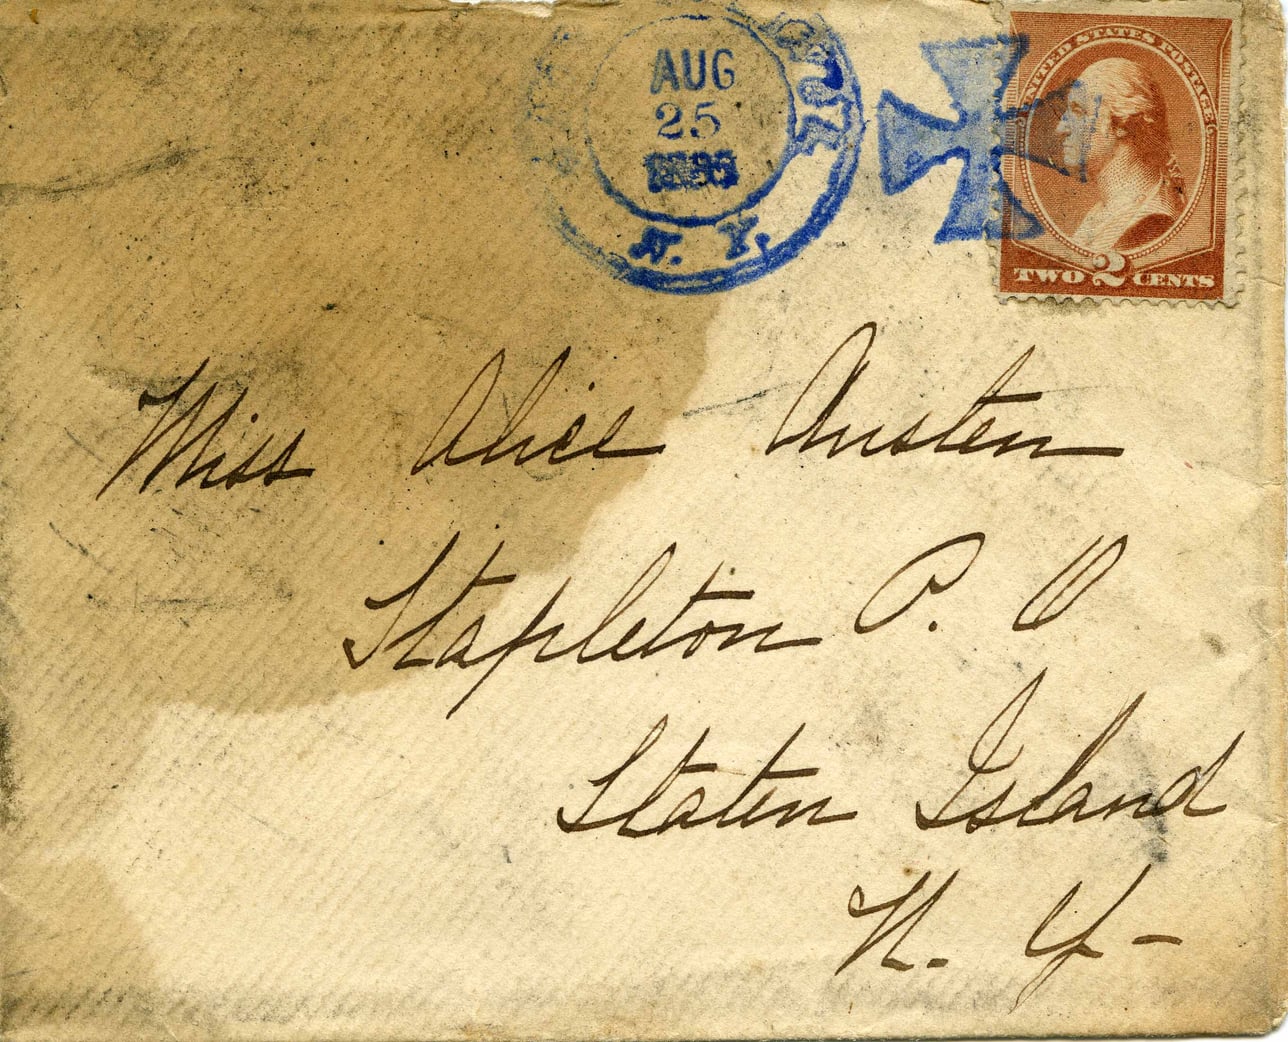 AUG
25
N. Y.
UNITED STATES POSTAGE
TWO 2 CENTS
Miss Alice Austen
Stapleton P. O
Staten Island
N. Y-